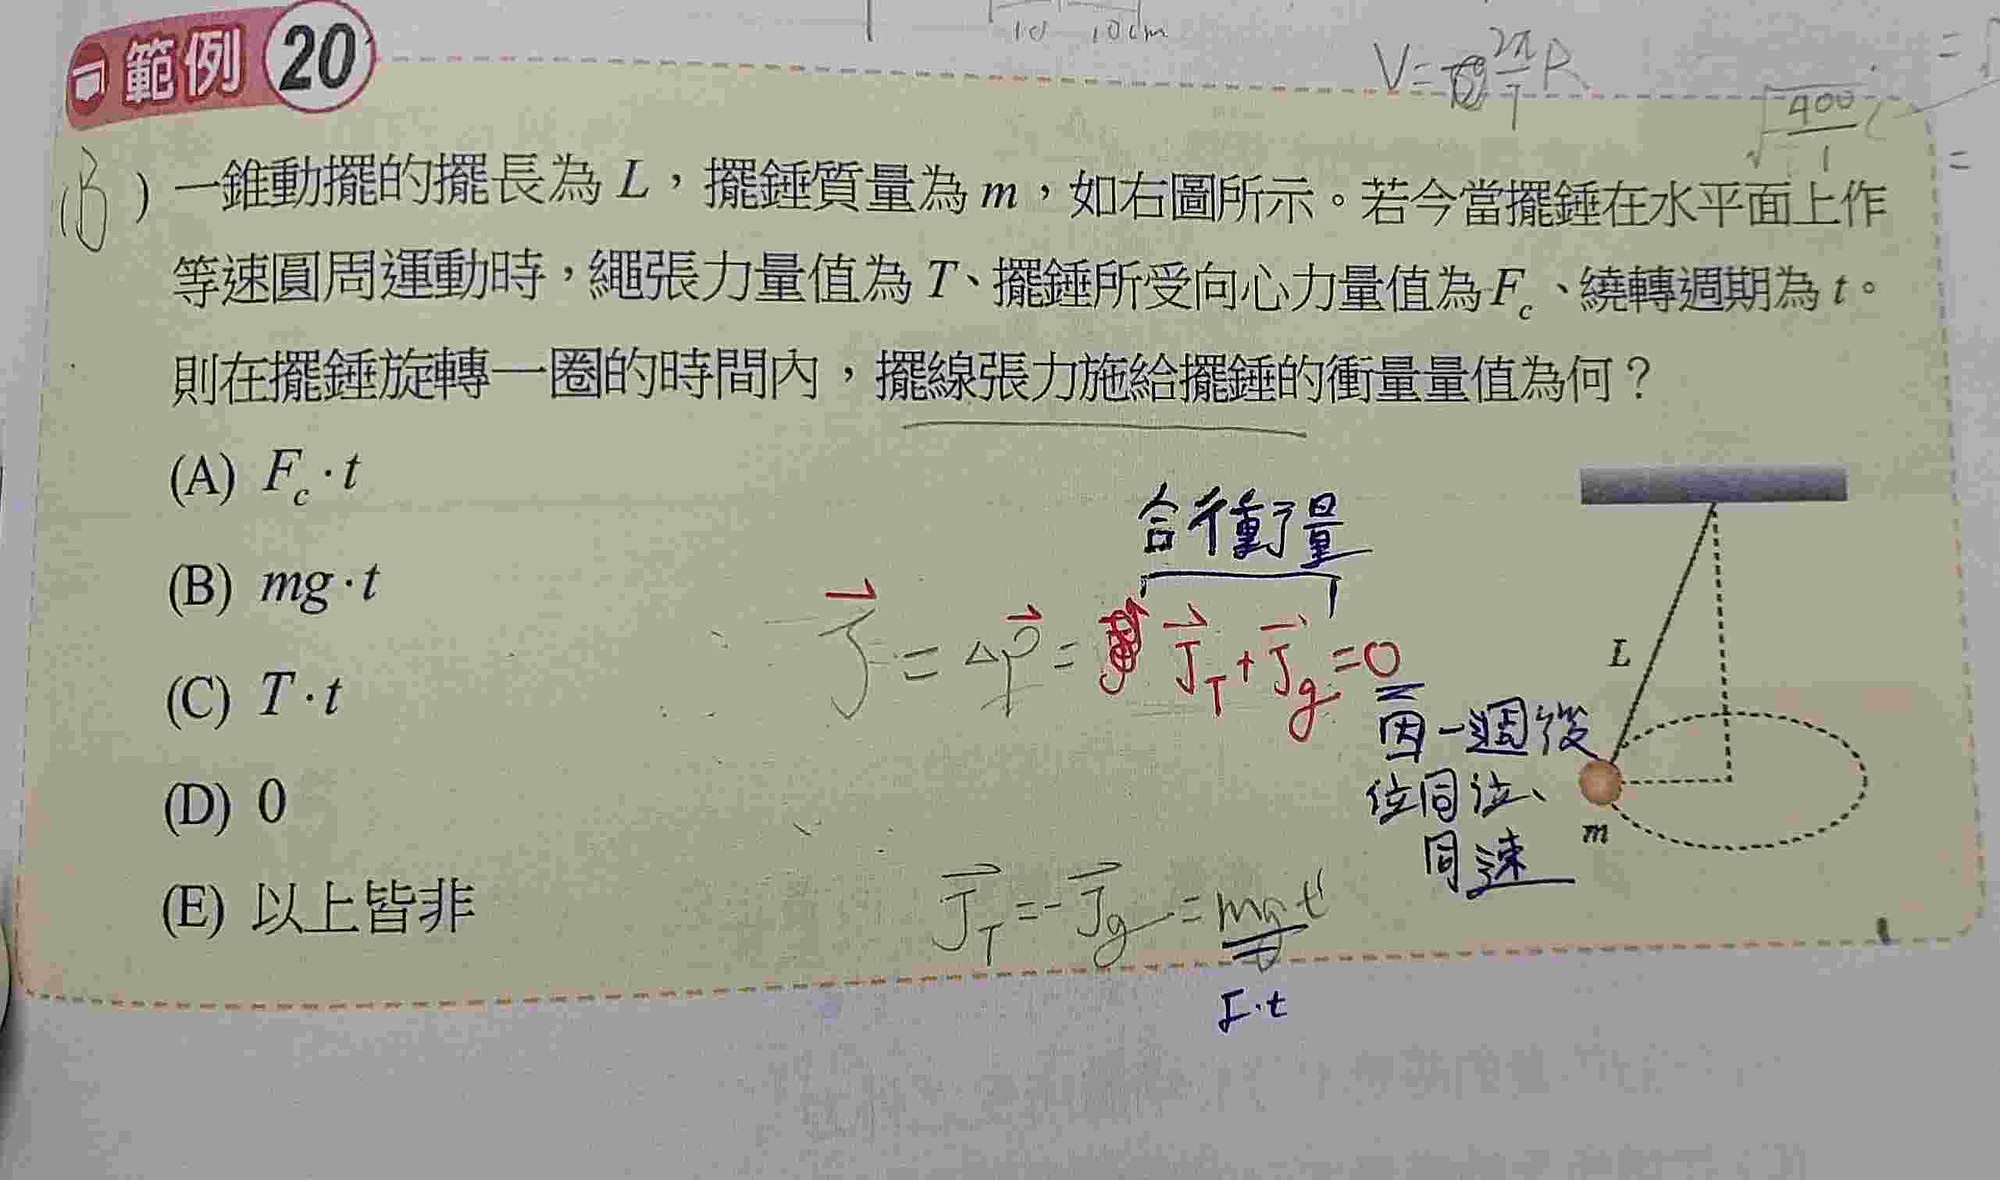 10 10cm
V= 2π/T R
√400/1
=
=
範例 20
(B) 一錐動擺的擺長為 L，擺錘質量為 m，如右圖所示。若今當擺錘在水平面上作
等速圓周運動時，繩張力量值為 T、擺錘所受向心力量值為 Fc、繞轉週期為 t。
則在擺錘旋轉一圈的時間內，擺線張力施給擺錘的衝量量值為何？
(A) Fc · t
(B) mg · t
(C) T · t
(D) 0
(E) 以上皆非
合衝量
J = ΔP = JT + Jg = 0
因一週後
位同位、
同速
JT = -Jg = mgt
F·t
L
m